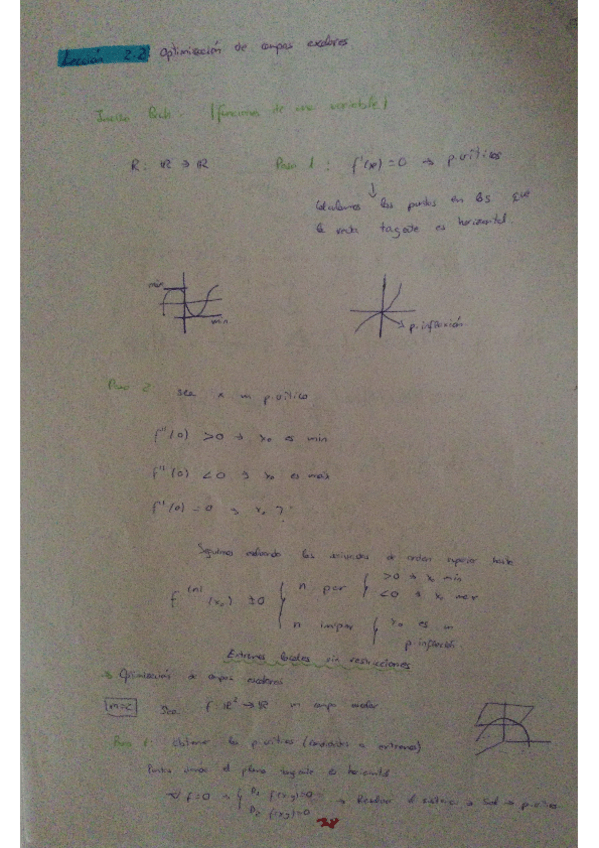 Lección 2.2 Optimización de campos escalares
(funciones de una variable)
R: ℝ → ℝ Paso 1: f'(x)=0 → p. críticos
↓
Calculamos los puntos en los que
la recta tagente es horizontal.
min
p. inflexión
Paso 2 sea x un p. crítico
f''(0) >0 → x₀ es min
f''(0) <0 → x₀ es max
f''(0) =0 → x₀ ?
Seguimos las derivadas de orden superior hasta
f⁽ⁿ⁾(x₀) ≠0 { n par { >0 → x₀ min
<0 → x₀ max
n impar { x₀ es un
p. inflexión.
Extremos locales sin restricciones
→ Optimización de campos escalares
n=2 Sea f: ℝ² → ℝ un campo escalar
Paso 1: Obtener los p. críticos (candidatos a extremo)
Puntos el plano tagente es horizontal
∇f=0 → { D₁ f(x,y)=0
D₂ f(x,y)=0 → Resolver el sistema